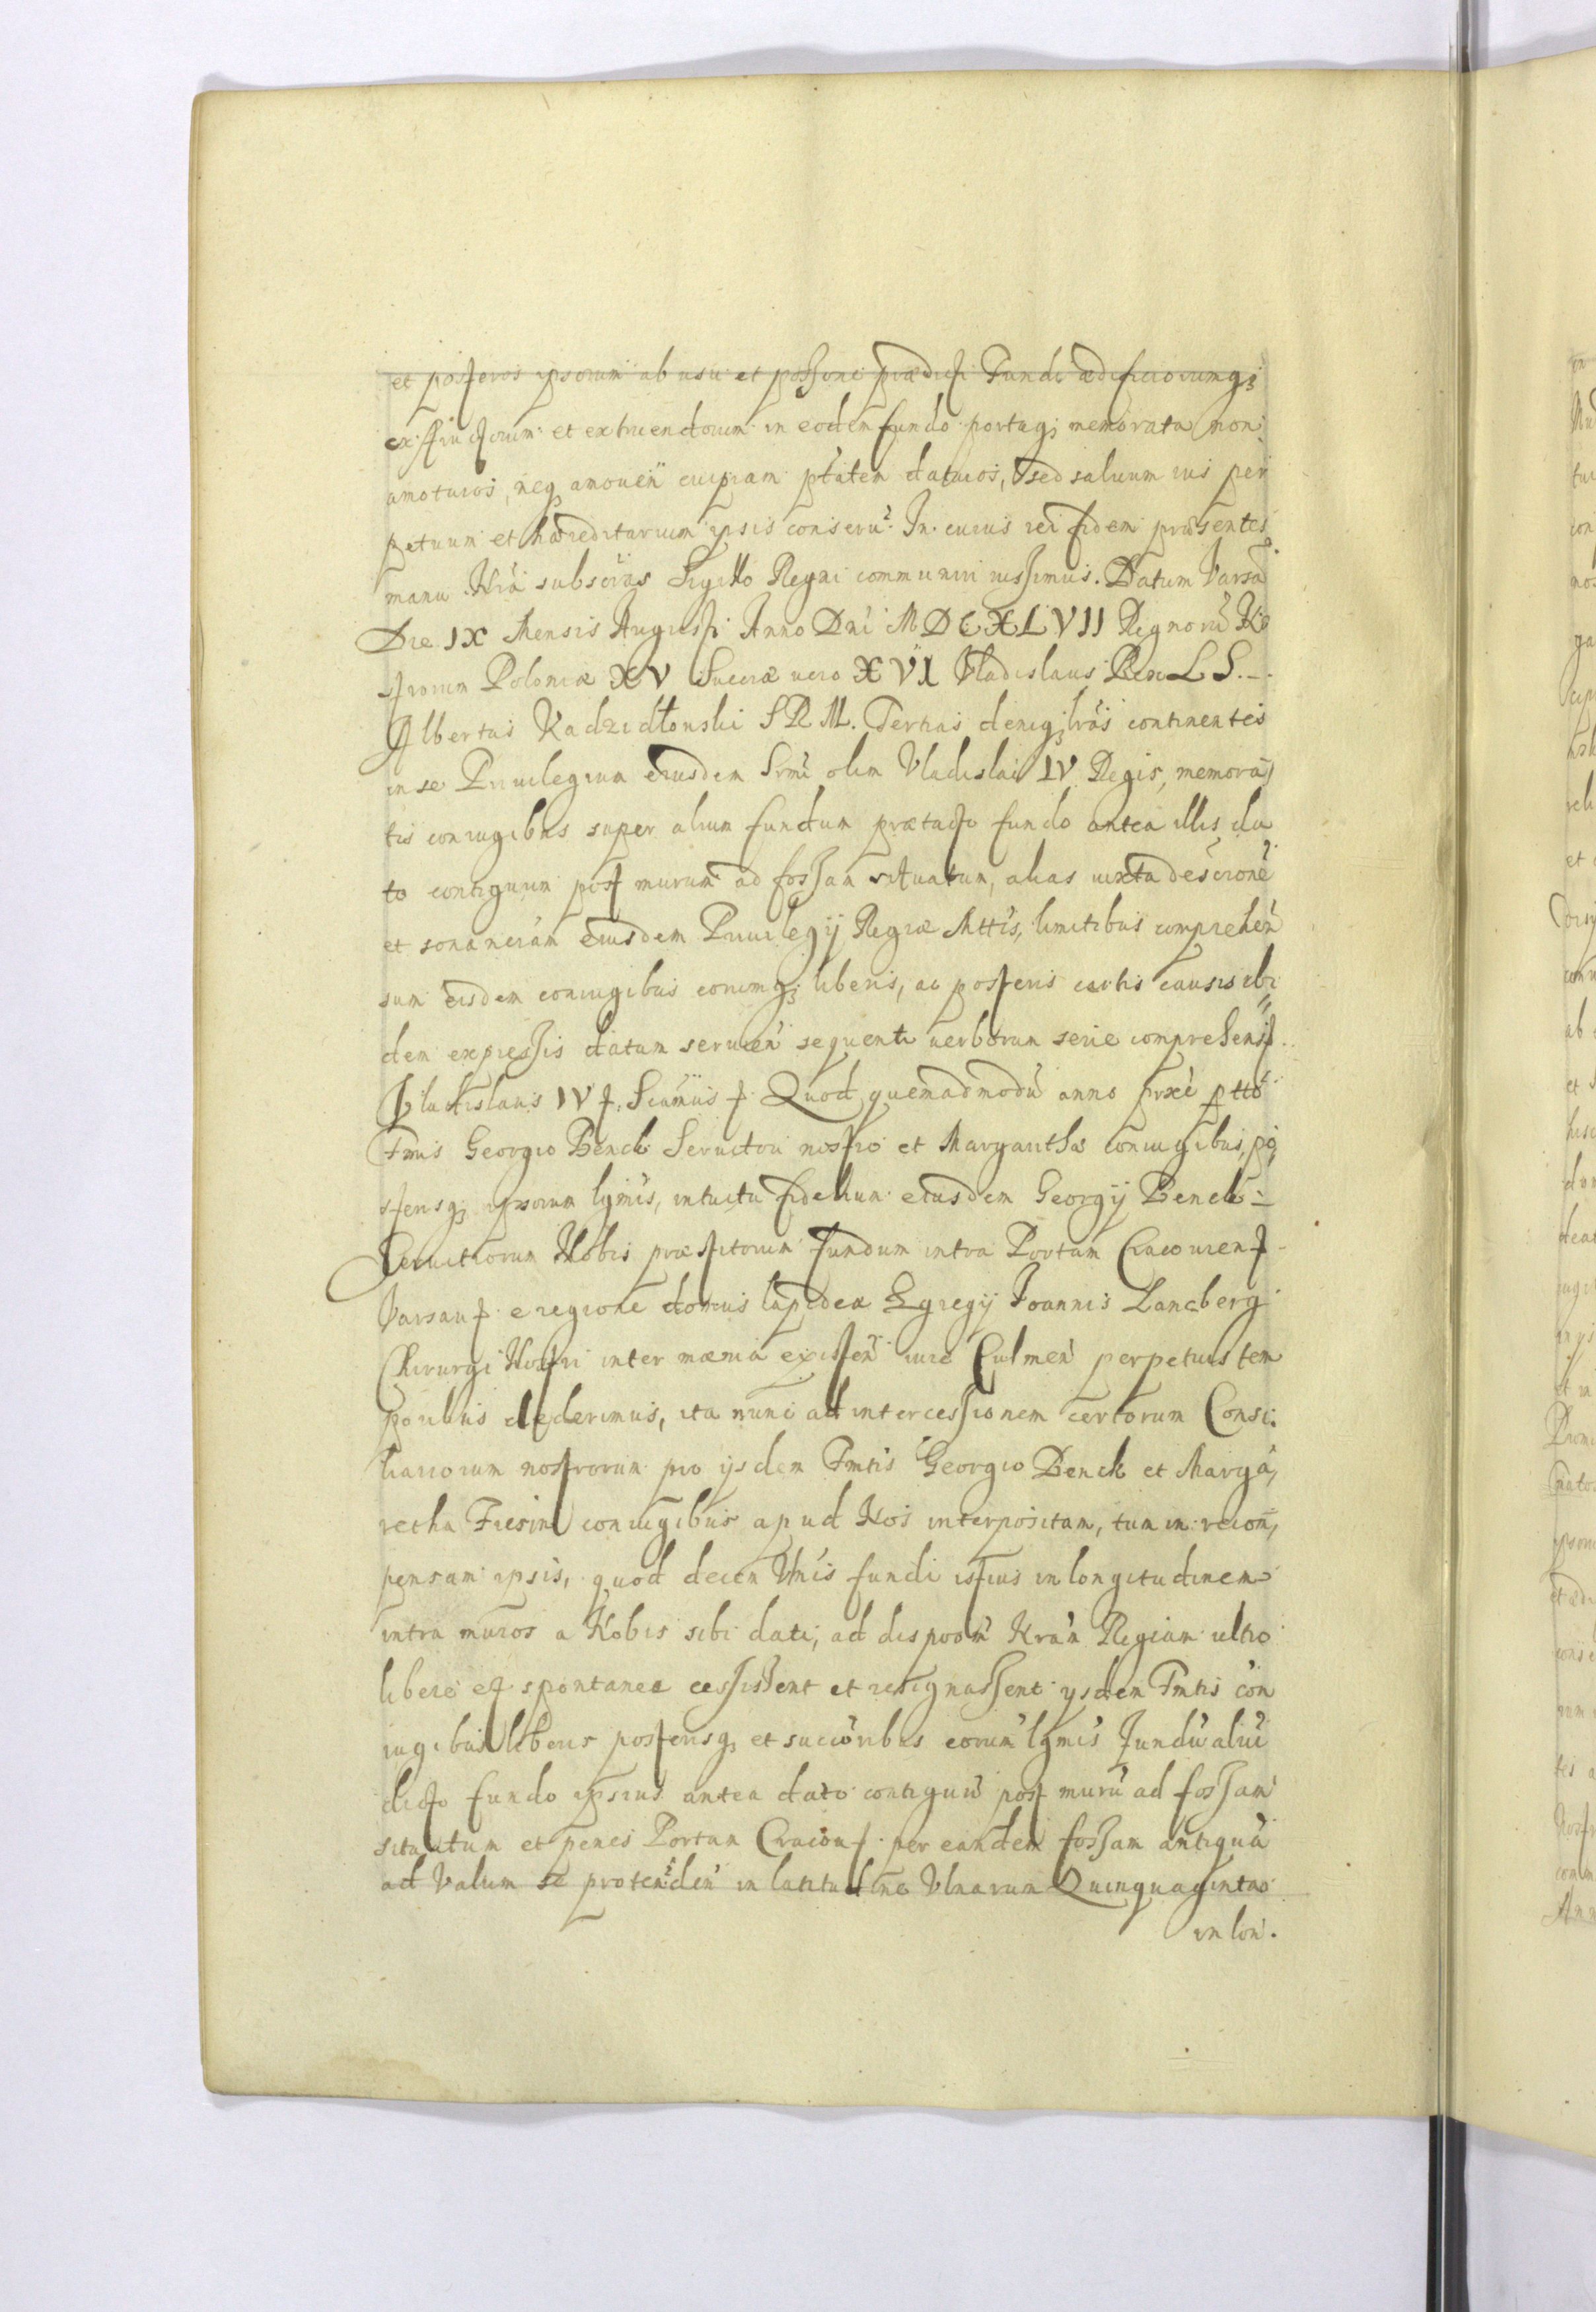 et posteros ipsorum ab usu et possone prædicti Fundi ædificiorumq;
exstructorum et extruendorum in eodem fundo portaq; memorata non
amoturos, neq amouen cuipiam ptatem daturos, sed saluum ius per
petuum et hæreditarium ipsis conseru. In cuius rei fidem præsentes
manu Nra subscras Sigillo Regni communiri iussimus. Datum Varsa
Die IX Mensis Augusti Anno Dni MDCXLVII Regnoru No
strorum Poloniæ XV Sueciæ uero XVI Vladislaus Rex L S.
Albertus Kadzidłonski S R M. Tertias deniq; lras continentes
in se Priuilegium eiusdem Srmi olim Vladislai IV Regis, memora
tis coniugibus super alium fundum prætacto fundo antea illis da
to contiguum post murum ad fossam situatum, alias iuxta descrione
et sonanciam eiusdem Priuilegij Regiæ Mttis, limitibus comprehen
sum eisdem coniugibus eorumq; liberis, ac posteris certis causis ibi
dem expressis datum seruien sequenti uerborum serie comprehens
Vladislaus IV Quod quemadmodu anno prxe ptto
Fmis Georgio Benck Seruitori nostro et Margaritha coniugibus, po
sterisq; ipsorum lgmis, intuitu fidelium eiusdem Georgij Benck
Seruitiorum Nobis præstitorum fundum intra Portam Cracouien
Varsau e regione domus lapideæ Egregij Joannis Lancberg
Chirurgi Nostri inter mænia existen iure Culmen perpetuis tem
poribus dederimus, ita nunc ad intercessionem certorum Consi
liariorum nostrorum pro ijsdem Fmtis Georgio Benck et Marga
retha Fresin coniugibus apud Nos interpositam, tum in recom
pensam ipsis, quod decem Vlnis fundi istius in longitudinem
intra muros a Nobis sibi dati, ad dispoom Nram Regiam ultro
libere et spontanee cessissent et resignassent ijsdem Fmtis con
iugibus liberis posterisq; et succoribus eorum lgmis fundu aliu
dicto fundo ipsius antea dato contiguu post muru ad fossam
situatum et penes Portam Cracou per eandem fossam antiqua
ad Valum se protenden in latitudine Vlnarum Quinquaginta
in lon.